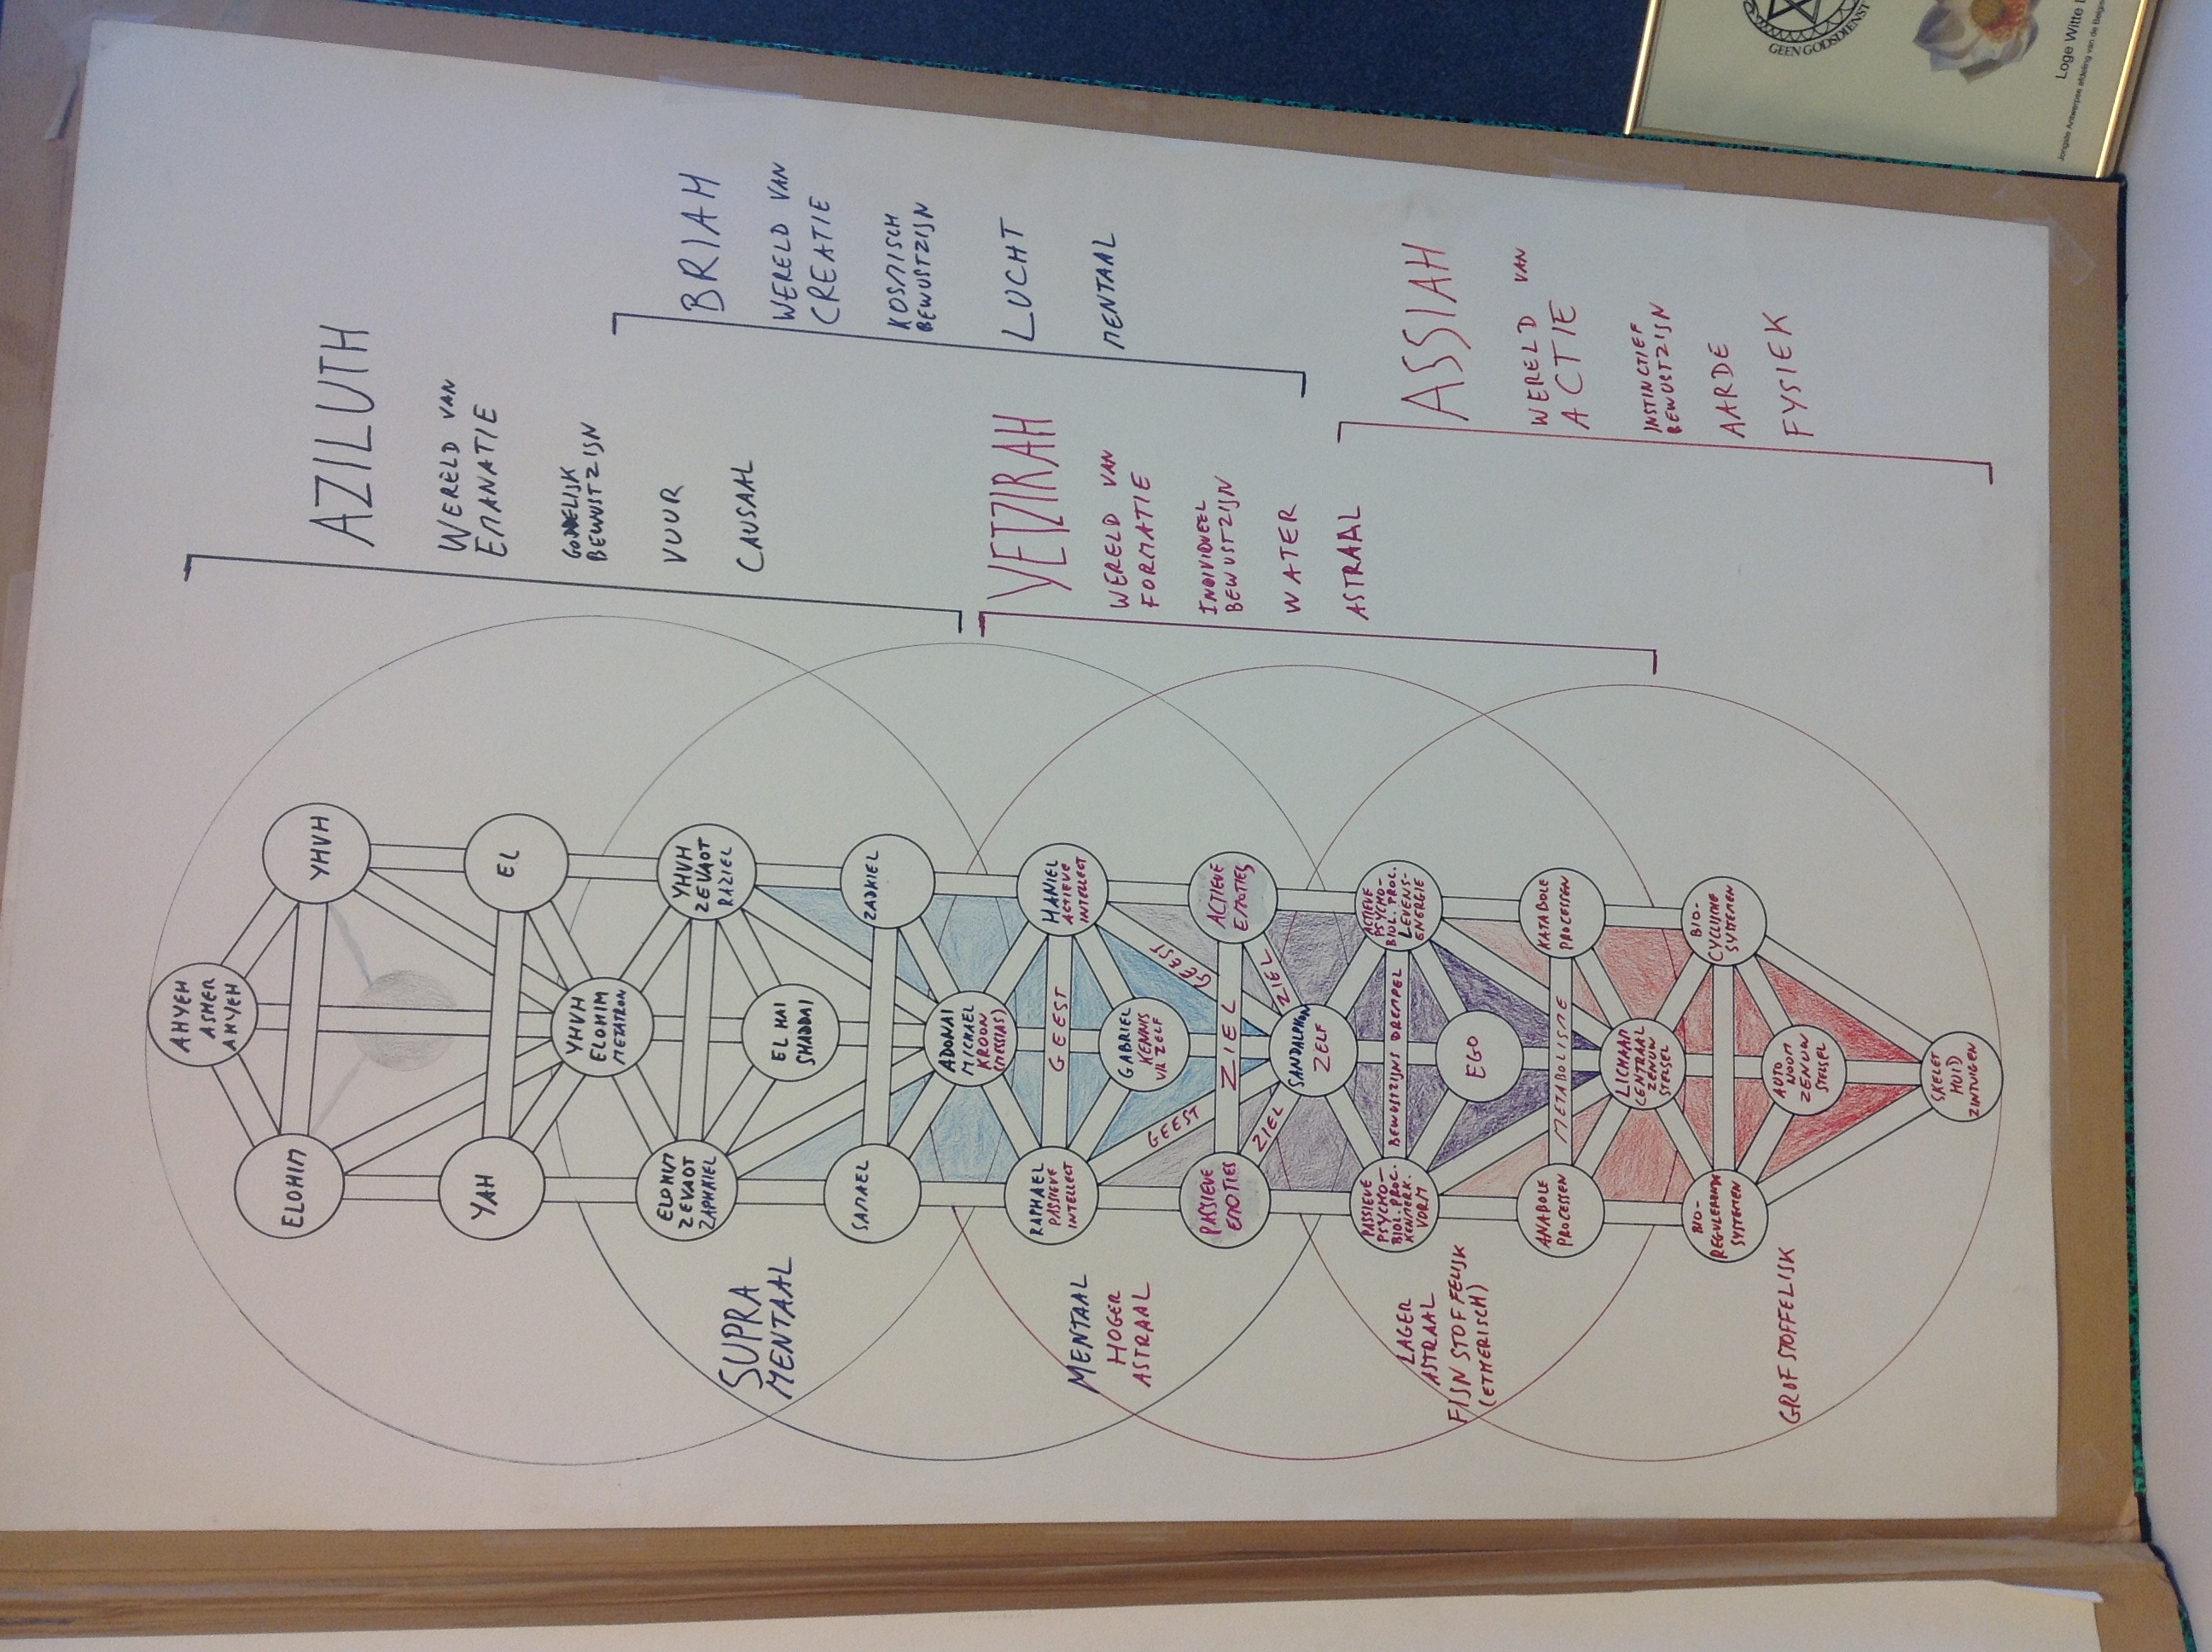 AHYEH
ASHER
AHYEH
ELOHIM
YHVH
YAH
EL
YHVH
ELOHIM
METATRON
ELOHIM
ZEVAOT
ZAPHKIEL
YHVH
ZEVAOT
RAZIEL
EL HAI
SHADDAI
SAMAEL
ZADKIEL
ADONAI
MICHAEL
KROON
(MESSIAS)
RAPHAEL
PASSIEVE
INTELLECT
GEEST
HANIEL
ACTIEVE
INTELLECT
GABRIEL
KENNIS
V/H ZELF
GEEST
GEEST
PASSIEVE
EMOTIES
ZIEL
ACTIEVE
EMOTIES
ZIEL
ZIEL
SANDALPHON
ZELF
PASSIEVE
PSYCHO-
BIOL. PROC.
KENMERK.
VORM
BEWUSTZIJNS DREMPEL
ACTIEVE
PSYCHO-
BIOL. PROC.
LEVENS-
ENERGIE
EGO
ANABOLE
PROCESSEN
METABOLISME
KATABOLE
PROCESSEN
LICHAAM
CENTRAAL
ZENUW
STELSEL
BIO-
REGULERENDE
SYSTEMEN
BIO-
CYCLISCHE
SYSTEMEN
AUTO
NOOM
ZENUW
STELSEL
SKELET
HUID
ZINTUIGEN
SUPRA
MENTAAL
MENTAAL
HOGER
ASTRAAL
LAGER
ASTRAAL
FIJN STOFFELIJK
(ETHERISCH)
GROF STOFFELIJK
AZILUTH
WERELD VAN
EMANATIE
GODDELIJK
BEWUSTZIJN
VUUR
CAUSAAL
BRIAH
WERELD VAN
CREATIE
KOSMISCH
BEWUSTZIJN
LUCHT
MENTAAL
YETZIRAH
WERELD VAN
FORMATIE
INDIVIDUEEL
BEWUSTZIJN
WATER
ASTRAAL
ASSIAH
WERELD VAN
ACTIE
INSTINCTIEF
BEWUSTZIJN
AARDE
FYSIEK
GEEN GODSDIENST
Loge Witte
Jongste Antwerpse afdeling van de